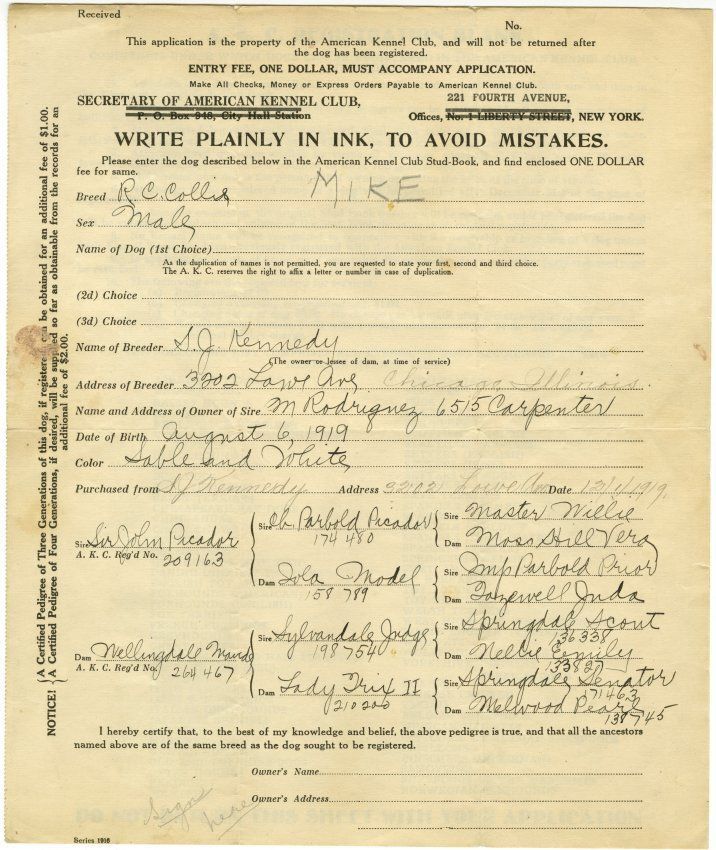 Received
No.
This application is the property of the American Kennel Club, and will not be returned after
the dog has been registered.
ENTRY FEE, ONE DOLLAR, MUST ACCOMPANY APPLICATION.
Make All Checks, Money or Express Orders Payable to American Kennel Club.
SECRETARY OF AMERICAN KENNEL CLUB, 221 FOURTH AVENUE,
P. O. Box 948, City Hall Station Offices, No. 1 LIBERTY STREET, NEW YORK.
WRITE PLAINLY IN INK, TO AVOID MISTAKES.
Please enter the dog described below in the American Kennel Club Stud-Book, and find enclosed ONE DOLLAR
fee for same.
Breed R. C. Collie MIKE
Sex Male
Name of Dog (1st Choice)
As the duplication of names is not permitted, you are requested to state your first, second and third choice.
The A. K. C. reserves the right to affix a letter or number in case of duplication.
(2d) Choice
(3d) Choice
Name of Breeder S. J. Kennedy
(The owner or lessee of dam, at time of service)
Address of Breeder 3202 Lowe Ave Chicago Illinois.
Name and Address of Owner of Sire M Rodriguez 6515 Carpenter
Date of Birth August 6, 1919
Color Sable and White
Purchased from S J Kennedy Address 3202 Lowe Ave Date 1919.
Sire Sir John Picador
A. K. C. Reg'd No. 209163
Sire Ch Parbold Picador
174480
Dam Iola Model
158789
Sire Master Willie
Dam Moss Hill Vera
Sire Imp Parbold Prior
Dam Tazewell Juda
Dam Wellingdale Maude
A. K. C. Reg'd No. 264467
Sire Sylvandale Judge
198754
Dam Lady Trix II
210200
Sire Springdale Scout
136338
Dam Nellie Emily
133827
Sire Springdale Senator
171463
Dam Melwood Pearl
138745
I hereby certify that, to the best of my knowledge and belief, the above pedigree is true, and that all the ancestors
named above are of the same breed as the dog sought to be registered.
Owner's Name
Owner's Address
Sign here
Series 1916
NOTICE! {A Certified Pedigree of Three Generations of this dog, if registered can be obtained for an additional fee of $1.00.
{A Certified Pedigree of Four Generations, if desired, will be supplied so far as obtainable from the records for an
additional fee of $2.00.